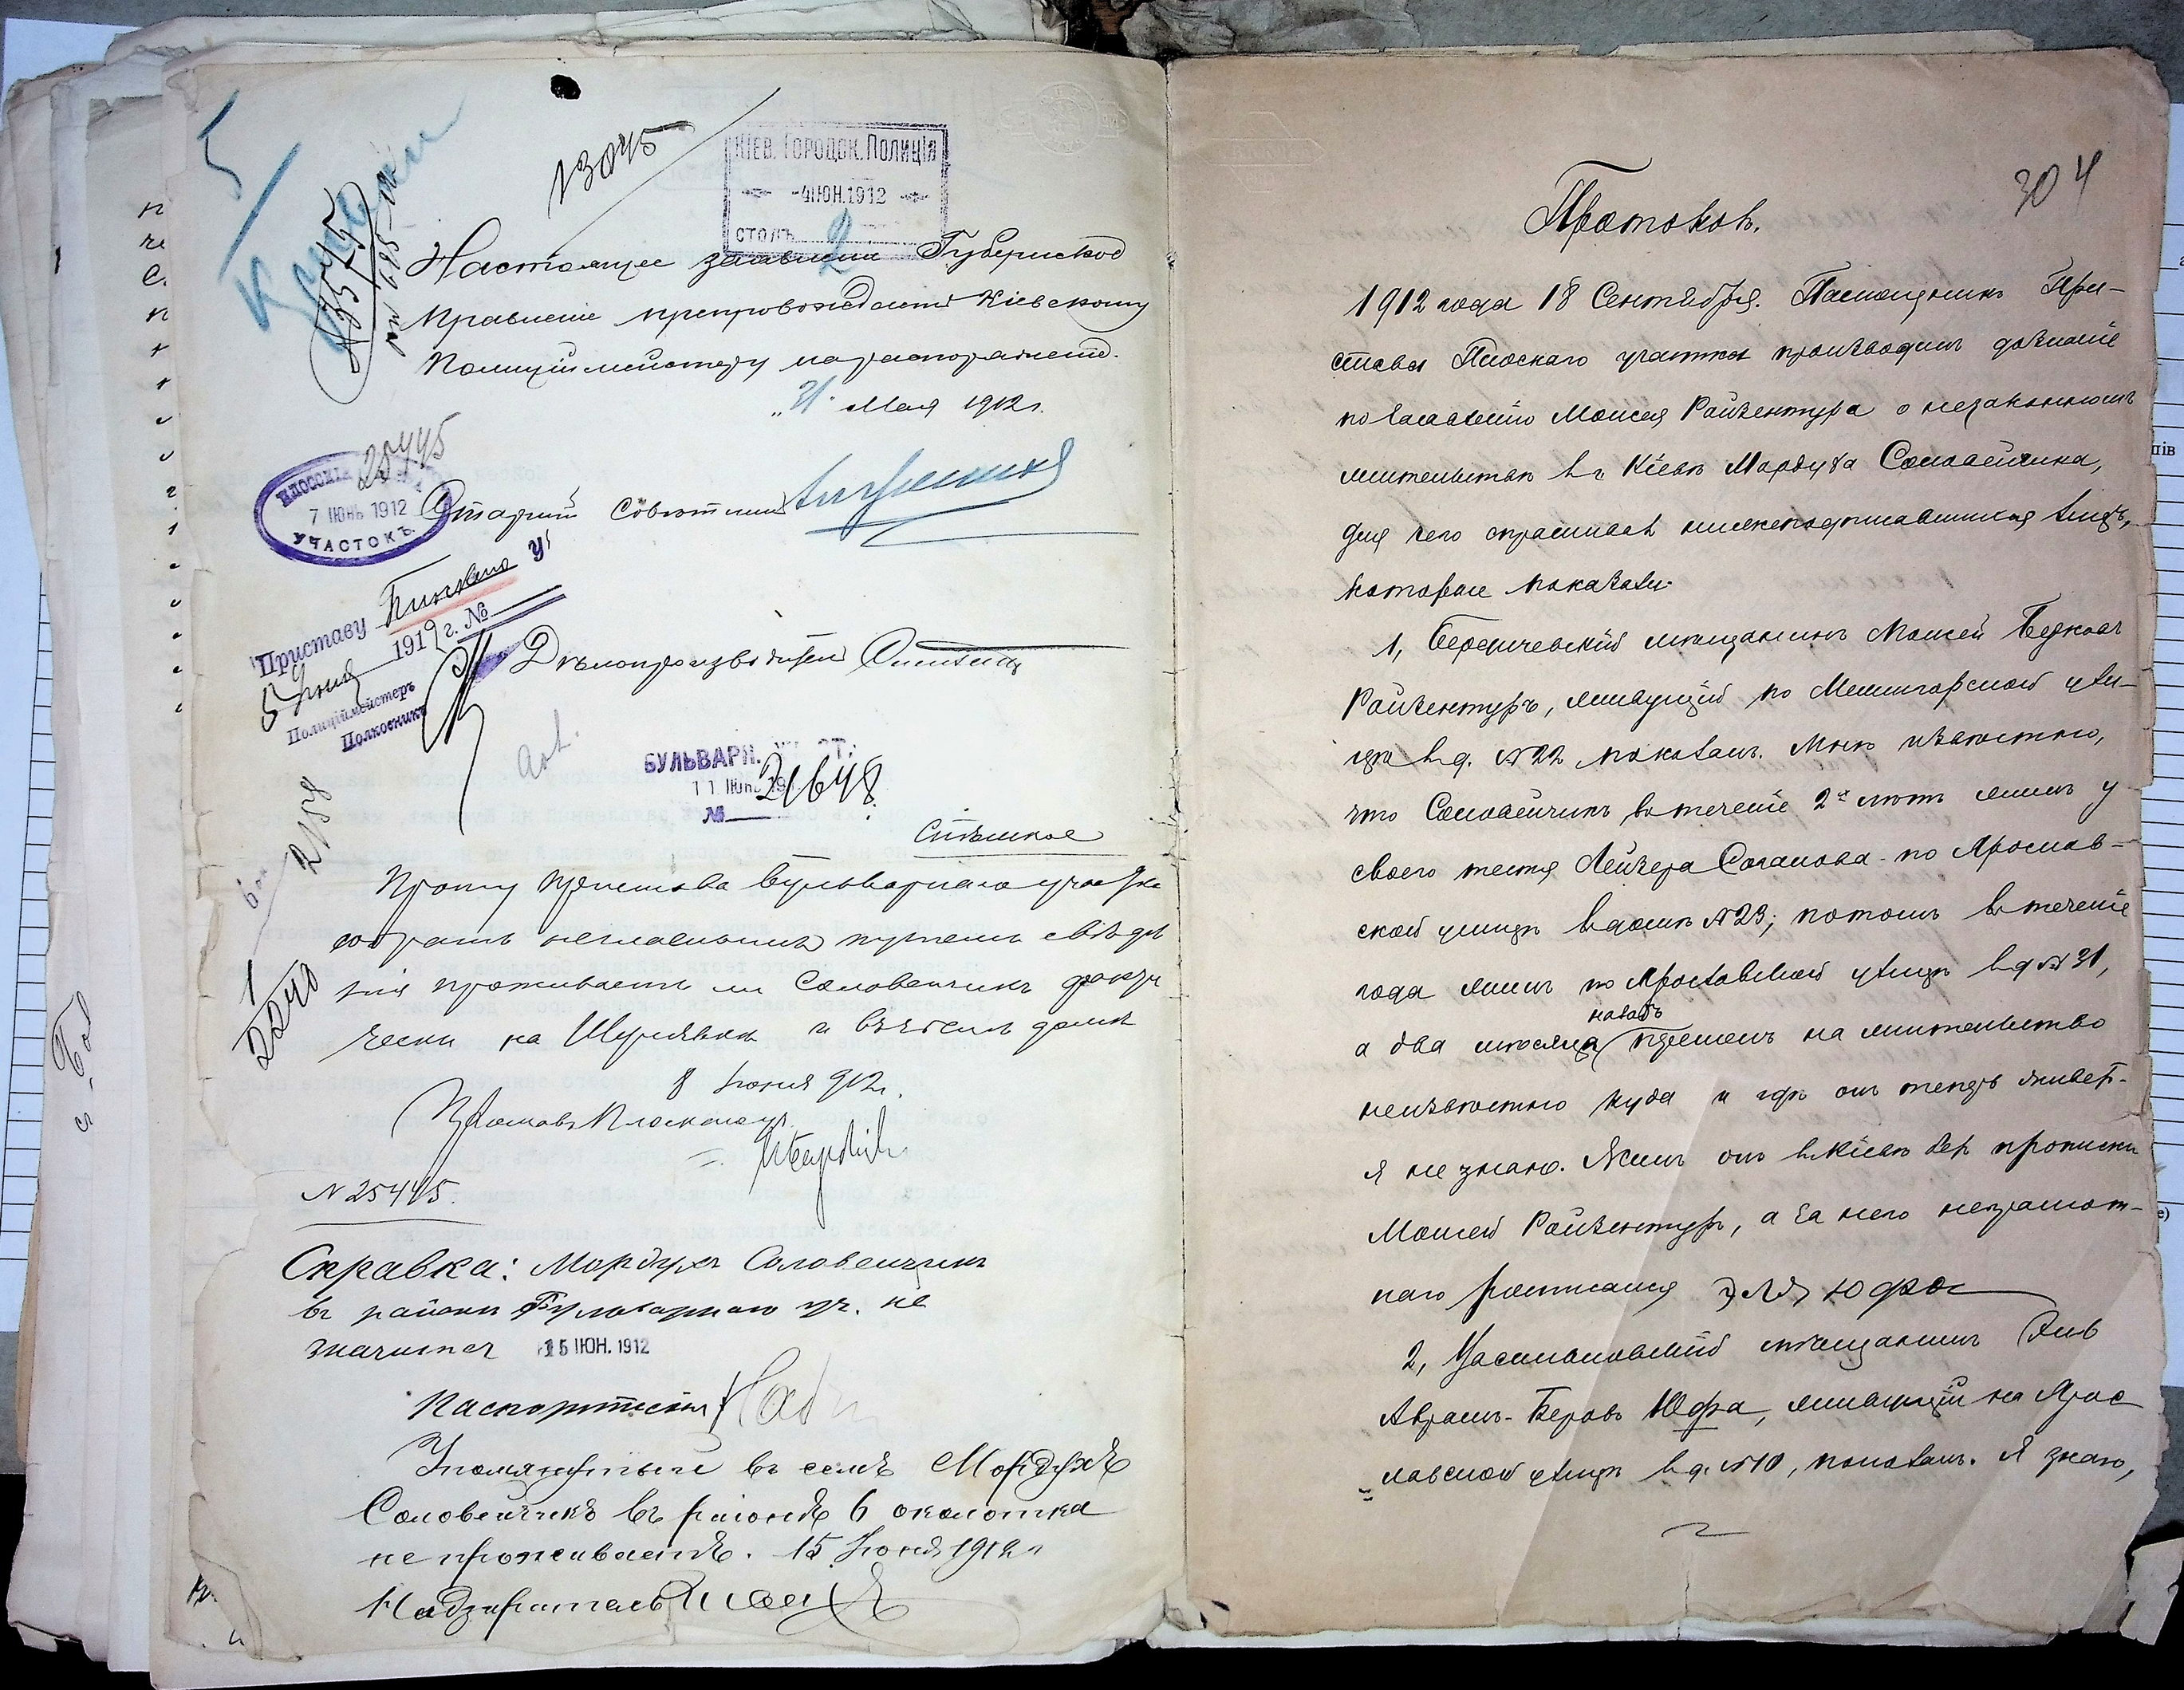 5
13045
КІЕВ. ГОРОДСК. ПОЛИЦІЯ
-4 ІЮН. 1912
СТОЛЪ 2
Настоящее заявленіе Губернское
Правленіе препровождаетъ Кіевскому
Полиціймейстеру на распоряженіе.
"31" Мая 1912 г.
25445
ПЛОССКІЙ
7 ІЮНЬ 1912
УЧАСТОКЪ
Старшій Совѣтникъ
Приставу
5 Іюня 1912 г. №
Полиціймейстеръ
Полковникъ
Дѣлопроизводитель
БУЛЬВАРН.
11 ІЮН. 191
№ 21648
2158
Спѣшное
Прошу Пристава Бульварнаго участка
собрать негласнымъ путемъ свѣдѣ
нія проживаетъ ли Соловейчикъ факти
чески на Шулявкѣ и въ чьемъ домѣ
8 Іюня 912 г.
Приставъ Плоскаго уч.
N 25445.
Справка: Мордухъ Соловейчикъ
въ районѣ Бульварнаго уч. не
значится 15 ІЮН. 1912
Паспортистъ
Упомянутый въ семъ Мордухъ
Соловейчикъ въ районѣ 6 околотка
не проживаетъ. 15 Іюня 1912 г
Надзиратель
304
Протоколъ.
1912 года 18 Сентября. Помощникъ При-
става Плоскаго участка производилъ дознаніе
по заявленію Моисея Райзентура о незаконномъ
жительствѣ въ г. Кіевѣ Мордуха Соловейчика,
для чего спрашивалъ нижеподписавшихся лицъ,
которые показали:
1, Бердичевскій мѣщанинъ Моисей Берковъ
Райзентуръ, живущій по Межигорской ули-
цѣ въ д. №22 показалъ. Мнѣ извѣстно,
что Соловейчикъ въ теченіе 2хъ лѣтъ жилъ у
своего тестя Лейзера Соганова по Ярослав-
ской улицѣ въ домѣ №23; потомъ въ теченіе
года жилъ по Ярославской улицѣ въ д №31,
а два мѣсяца назадъ перешелъ на жительство
неизвѣстно куда и гдѣ онъ теперь живетъ
я не знаю. Жилъ онъ въ Кіевѣ безъ прописки
Моисей Райзентуръ, а за него неграмот-
наго росписался Элв Юфа
2, мѣщанинъ Элв
Аврамъ-Беровъ Юфа, живущій на Ярос
лавской улицѣ въ д. №10, показалъ. Я знаю,